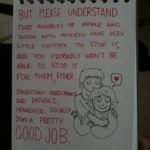 BUT PLEASE UNDERSTAND
THAT MAJORITY OF PEOPLE WHO
SUFFER WITH ANXIETY HAVE VERY
LITTLE CONTROL TO STOP IT,
AND YOU PROBABLY WON'T BE
ABLE TO STOP IT
FOR THEM EITHER.
CONSISTENT
AND PATIENCE,
HOWEVER, USUALLY
DOES A PRETTY
GOOD JOB.